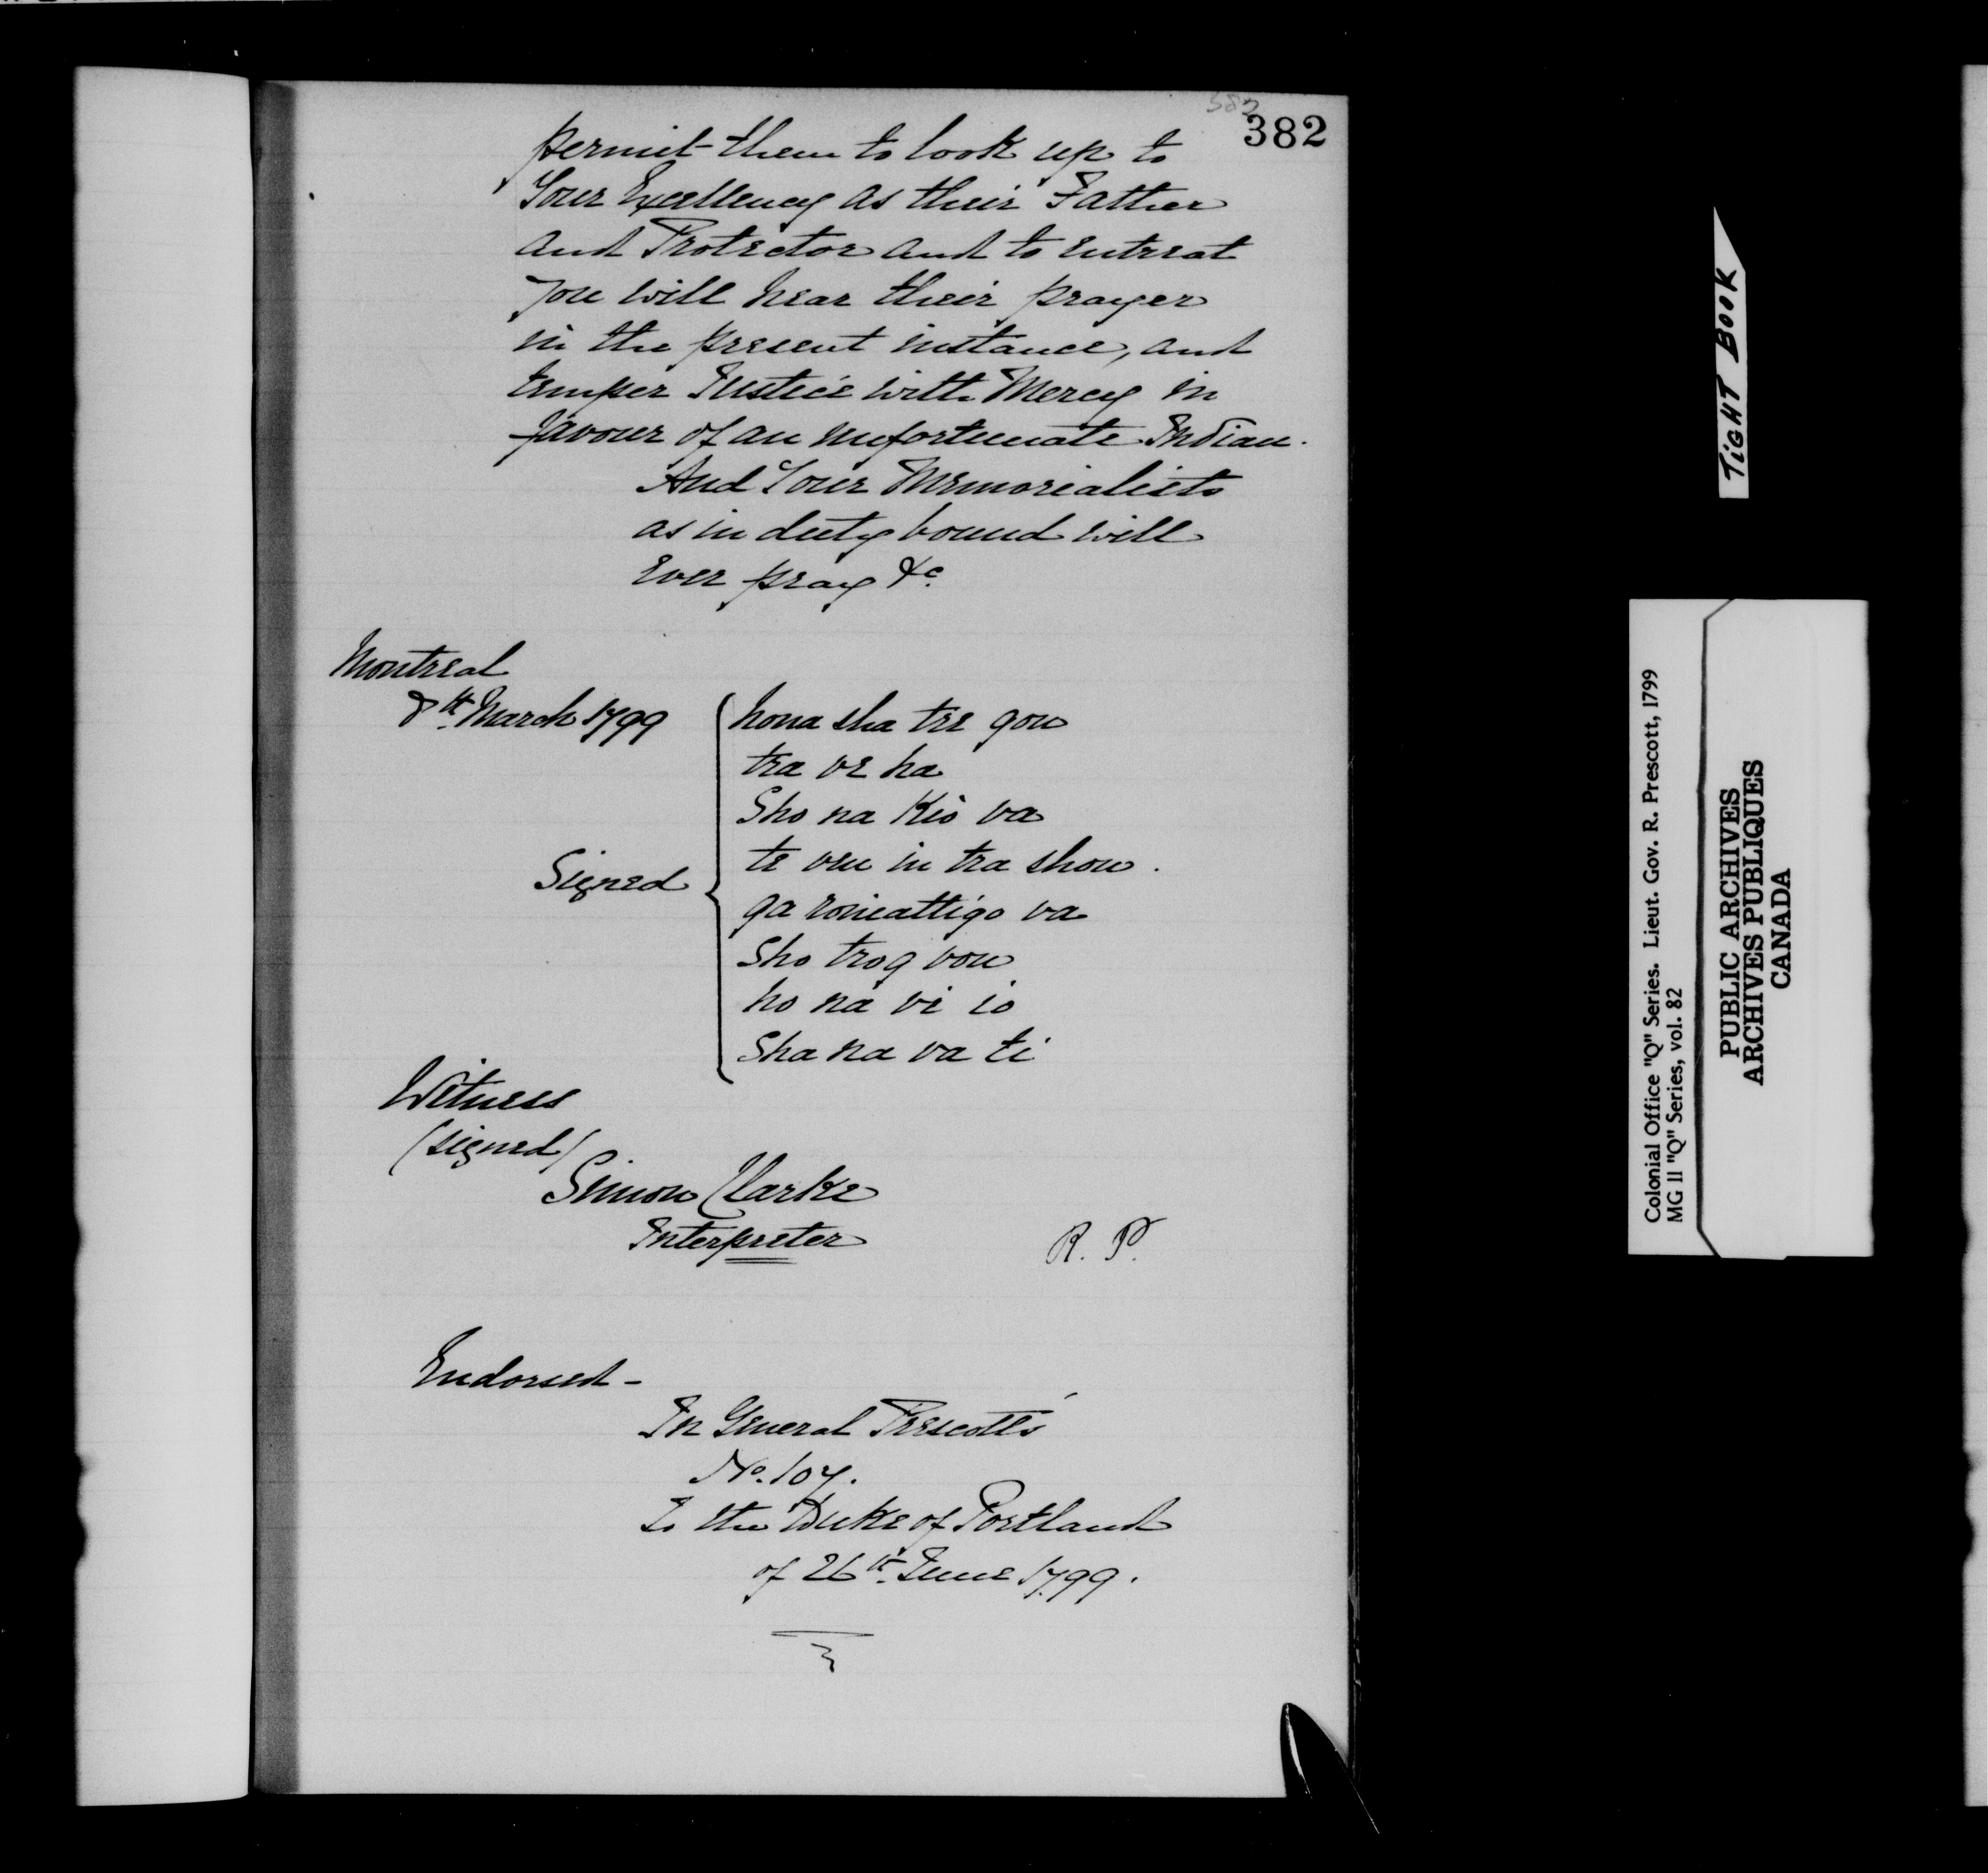 382
permit them to look up to
Your Excellency as their Father
and Protector and to entreat
you will hear their prayer
in the present instance, and
temper Justice with Mercy in
favour of an unfortunate Indian.
And Your Memorialists
as in duty bound will
ever pray &c.
Montreal
8th March 1799
hona sha tre gou
tra ve ha
Sho na Kio va
te ven in tra shou.
Signed
ga roniattigo va
Sho trog vou
ho na vi io
Sha na va ti
Witness
(signed)
Simon Clarke
Interpreter
R. P.
Endorsed -
In General Prescott's
No. 107.
To the Duke of Portland
of 26th June 1799.
TiGHT BOOK
Colonial Office "Q" Series. Lieut. Gov. R. Prescott, 1799
MG 11 "Q" Series, vol. 82
PUBLIC ARCHIVES
ARCHIVES PUBLIQUES
CANADA